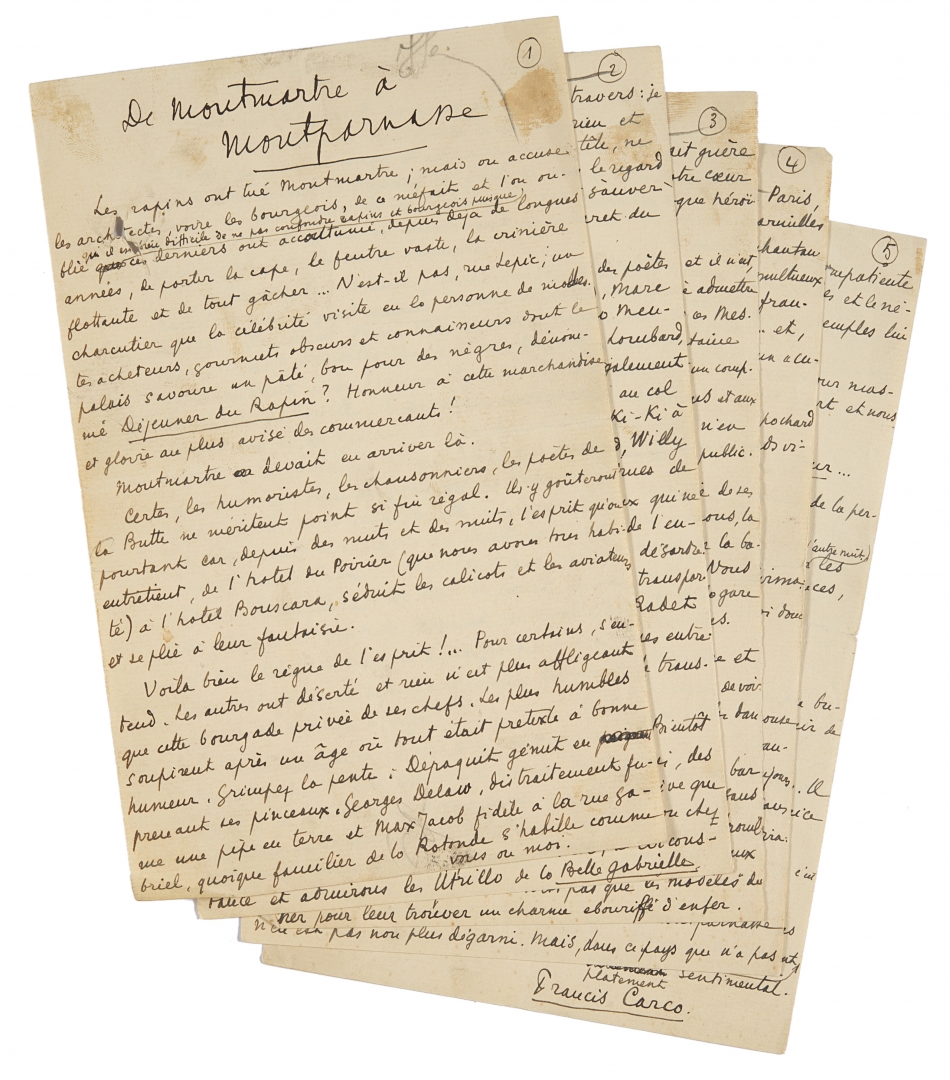 1
De Montmartre à
Montparnasse
Les rapins ont tué Montmartre ; mais on accuse
les architectes, voire les bourgeois, de ce méfait et l'on ou-
qu'il est difficile de ne pas confondre rapins et bourgeois puisque
blie ces derniers ont accoutumé, depuis déjà de longues
années, de porter la cape, le feutre vaste, la crinière
flottante et de tout gâcher... N'est-il pas, rue Lepic, un
charcutier que la célébrité visite en la personne de modes-
tes acheteurs, gourmets obscurs et connaisseurs dont le
palais savoure un pâté, bon pour des nègres, dénom-
mé Déjeuner du Rapin ? Honneur à cette marchandise
et gloire au plus avisé des commerçants !
Montmartre devait en arriver là.
Certes, les humoristes, les chansonniers, les poètes de
la Butte ne méritent point si fin régal. Ils y goûteront
pourtant car, depuis des nuits et des nuits, l'esprit qu'eux
entretient, de l'hôtel du Poirier (que nous avons tous habi-
té) à l'hotel Bouscara, séduit les calicots et les aviateurs
et se plie à leur fantaisie.
Voilà bien le règne de l'esprit !... Pour certains, s'en-
tend. Les autres ont déserté et rien n'est plus affligeant
que cette bourgade privée de ses chefs. Les plus humbles
soupirent après un âge où tout était prétexte à bonne
humeur. Grimpez la pente : Dépaquit gémit en
prenant ses pinceaux. Georges Delaw, distraitement fu-
me une pipe en terre et Max Jacob fidèle à la rue Ga-
briel, quoique familier de la Rotonde s'habille comme
vous ou moi.
2
travers : je
rien et
tête, ne
le regard
s'auver-
ret du
des poètes
, Marc
o Meu-
Lombard,
galement
au col
Ki-Ki à
, Willy
rues de
qui née
de l'en-
désarti-
transpor
Radet
es entre
trans-
Bientôt
, des
ive que
chef
tance et admirons les Utrillo de la Belle Gabrielle
3
ait guère
tre cœur
que héroï
et il n'est
à admettre
es Mes.
taine
un comp.
us et aux
n'en
public.
de ses
ous, la
la ba-
Vous
gare
es.
e et
de voir
dans
bar
sans
cous-
pas que ces modèles du
ner pour leur trouver un charme ébouriffé d'enfer.
4
Paris,
arnielles
chantan
multueux
fran-
et,
un acu-
pochard
Ds vi-
ouse
n'en est pas non plus dégarni. Mais, dans ce pays que n'a pas
5
impatiente
es et le né-
emples lui
ur nos-
rt et nous
ur...
de la per-
l'autre nuit)
à les
aces,
i donc
a bu-
cir de
au-
ejours. Il
auvice
platement sentimental.
Francis Carco.